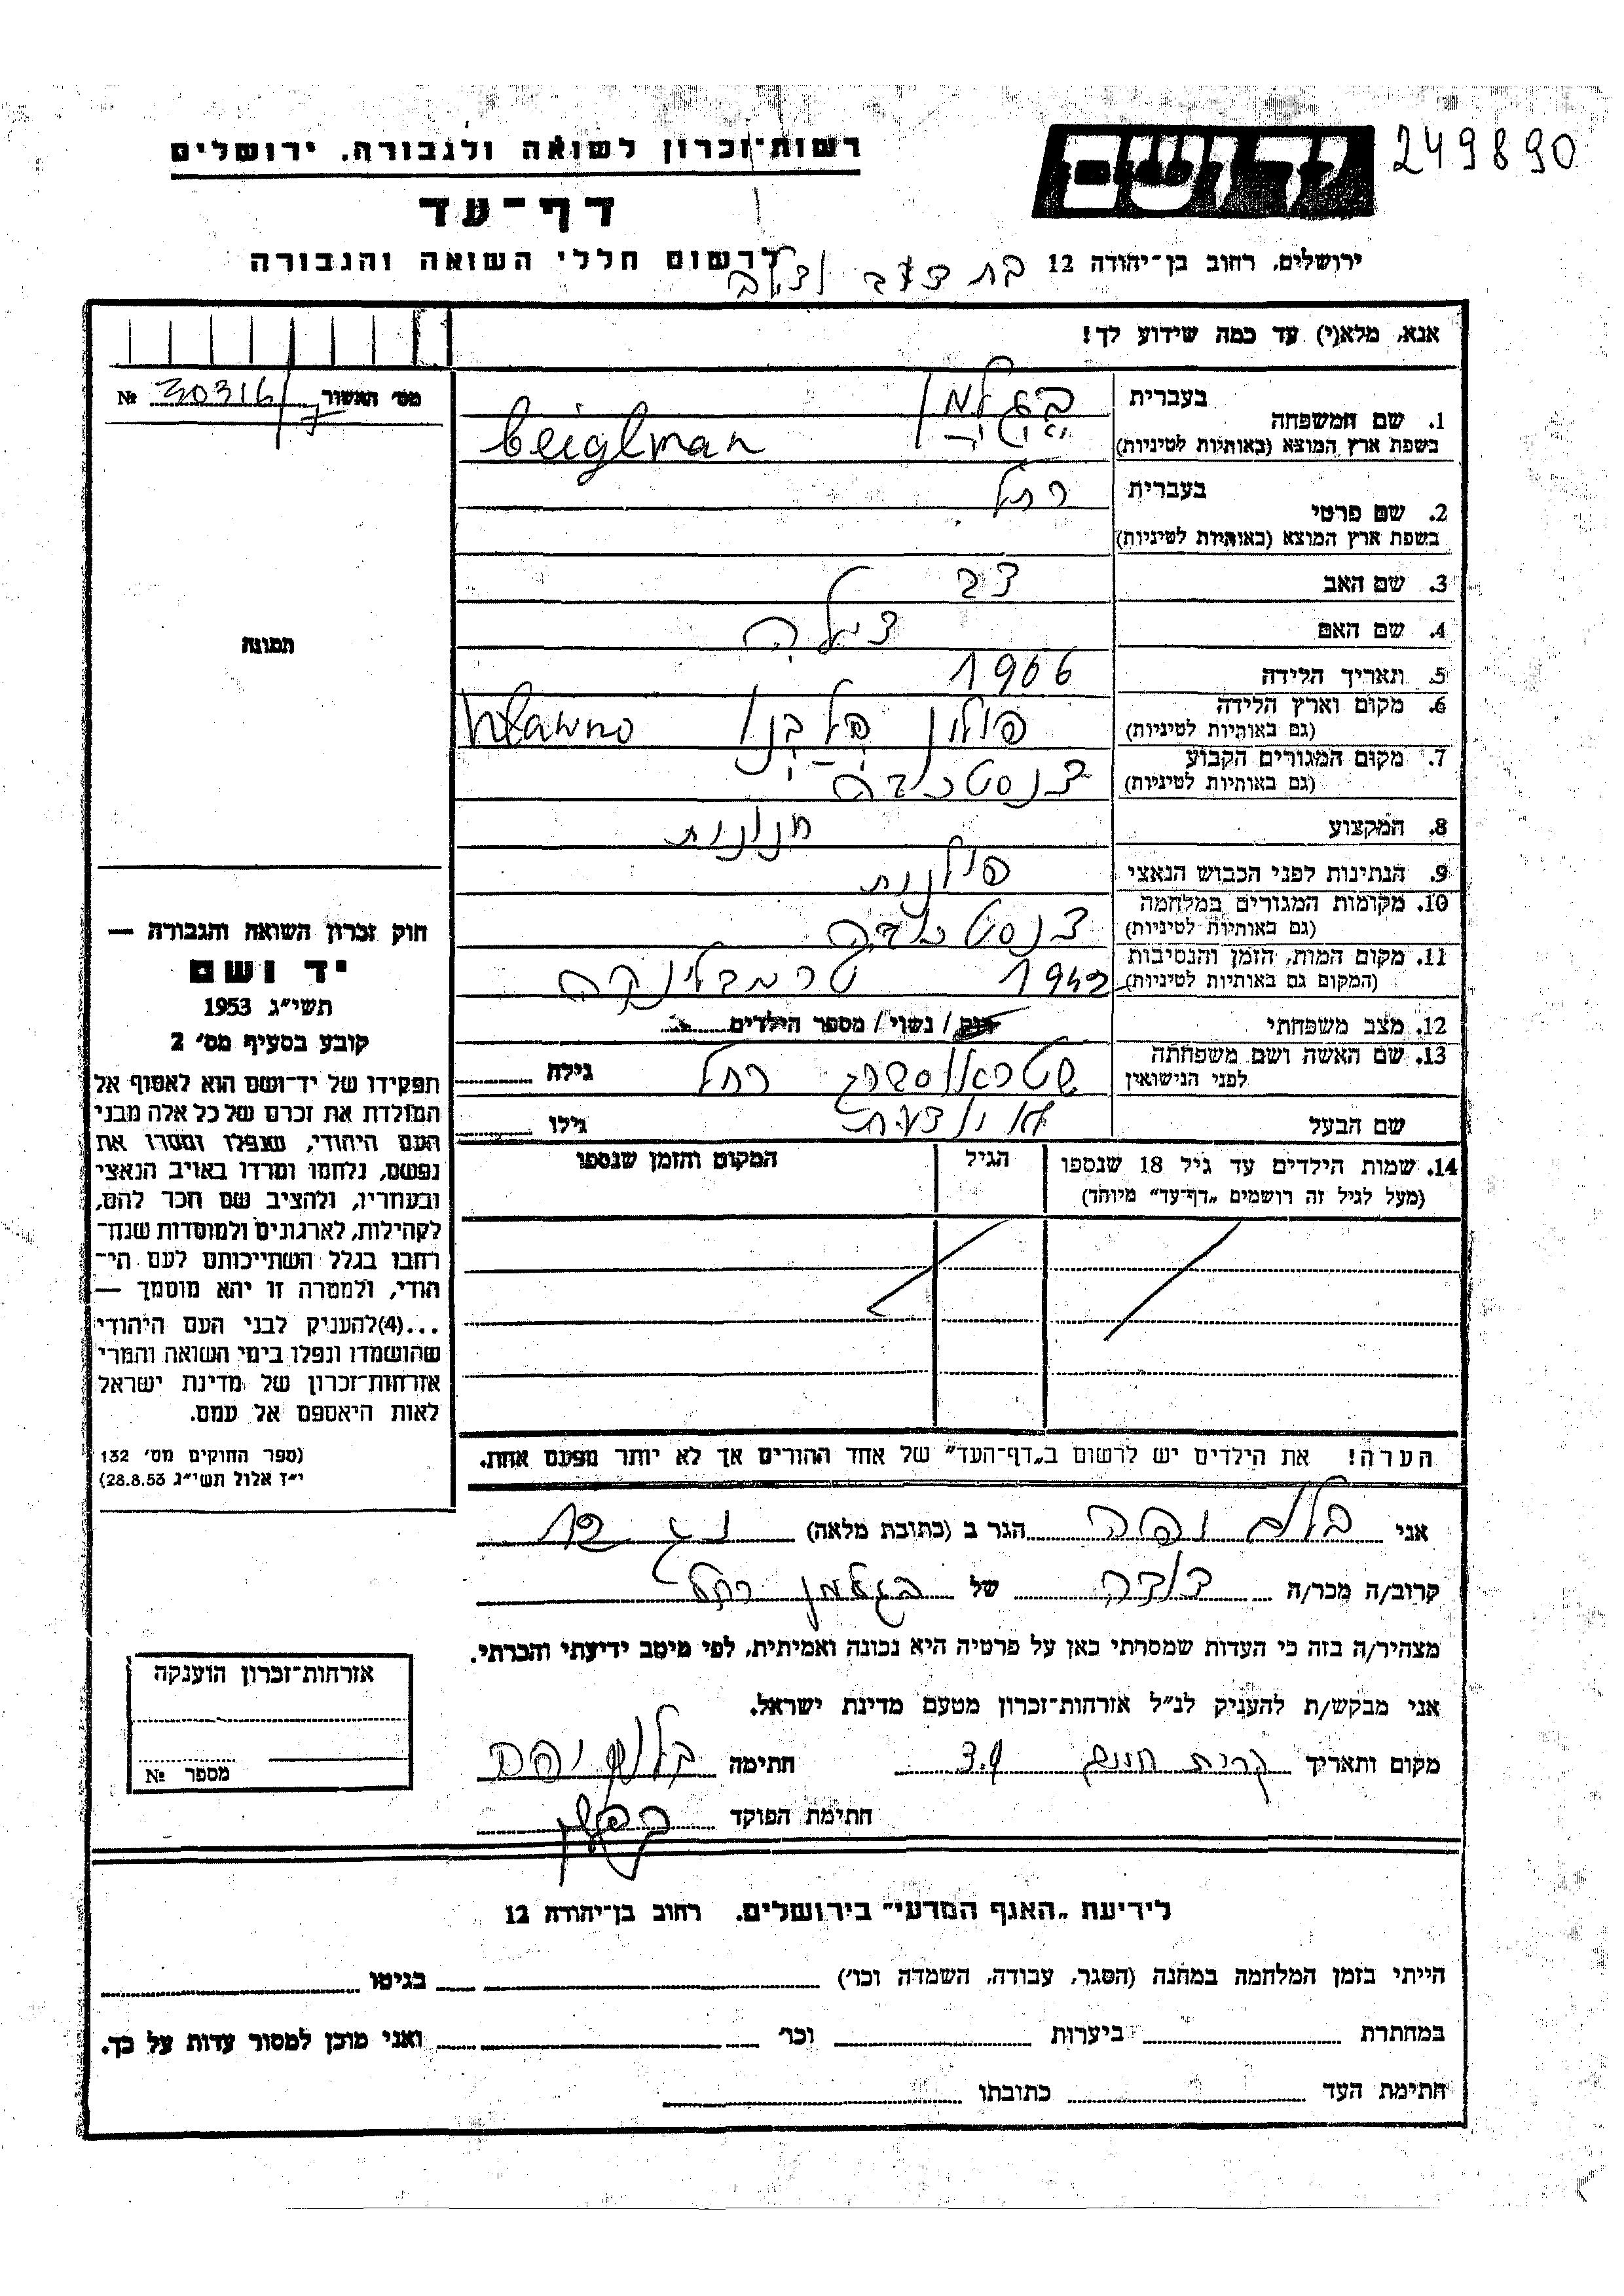 249890
יד ושם
רשות־זכרון לשואה ולגבורה, ירושלים
דף־עד
לרשום חללי השואה והגבורה
ירושלים, רחוב בן־יהודה 12
אנא, מלא(י) עד כמה שידוע לך!
מס׳ האשור 30316/7 №
1. שם המשפחה בעברית בגלמן
בשפת ארץ המוצא (באותיות לטיניות) beiglman
2. שם פרטי בעברית רחל
בשפת ארץ המוצא (באותיות לטיניות)
3. שם האב צבי
4. שם האם צילה
5. תאריך הלידה 1906
6. מקום וארץ הלידה (גם באותיות לטיניות) פולין
7. מקום המגורים הקבוע (גם באותיות לטיניות) צנסטכובה
8. המקצוע חנונית
9. הנתינות לפני הכבוש הנאצי פולנית
10. מקומות המגורים במלחמה (גם באותיות לטיניות) צנסטכובה
11. מקום המות, הזמן והנסיבות (המקום גם באותיות לטיניות) 1942 טרמבלינקה
12. מצב משפחתי רווק / נשוי / מספר הילדים
13. שם האשה ושם משפחתה לפני הנישואין רחל גילה
שם הבעל לא יודעת גילו
14. שמות הילדים עד גיל 18 שנספו
(מעל לגיל זה רושמים „דף־עד״ מיוחד)
הגיל
המקום והזמן שנספו
הערה! את הילדים יש לרשום ב„דף־העד״ של אחד ההורים אך לא יותר מפעם אחת.
תמונה
חוק זכרון השואה והגבורה —
יד ושם
תשי״ג 1953
קובע בסעיף מס׳ 2
תפקידו של יד־ושם הוא לאסוף אל
המולדת את זכרם של כל אלה מבני
העם היהודי, שנפלו ומסרו את
נפשם, נלחמו ומרדו באויב הנאצי
ובעוזריו, ולהציב שם וזכר להם,
לקהילות, לארגונים ולמוסדות שנח־
רבו בגלל השתייכותם לעם הי־
הודי, ולמטרה זו יהא מוסמך —
...(4)להעניק לבני העם היהודי
שהושמדו ונפלו בימי השואה והמרי
אזרחות־זכרון של מדינת ישראל
לאות היאספם אל עמם.
(ספר החוקים מס׳ 132
י״ז אלול תשי״ג 28.8.53)
אני הגר ב (כתובת מלאה)
קרוב/ה מכר/ה דודה של בגלמן רחל
מצהיר/ה בזה כי העדות שמסרתי כאן על פרטיה היא נכונה ואמיתית, לפי מיטב ידיעתי והכרתי.
אני מבקש/ת להעניק לנ״ל אזרחות־זכרון מטעם מדינת ישראל.
מקום ותאריך קרית חתימה
חתימת הפוקד
אזרחות־זכרון הוענקה
מספר №
לידיעת „האגף המדעי״ בירושלים. רחוב בן־יהודה 12
הייתי בזמן המלחמה במחנה (הסגר, עבודה, השמדה וכו׳) בגיטו
במחתרת ביערות וכו׳ ואני מוכן למסור עדות על כך.
חתימת העד כתובתו